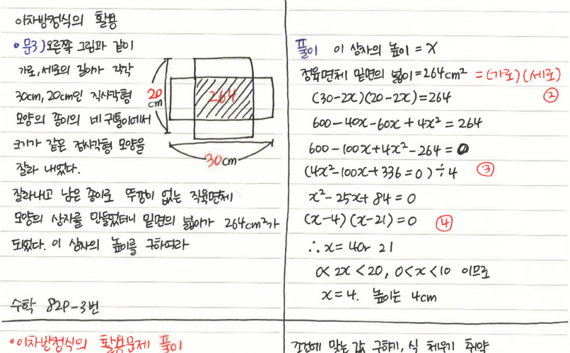 이차방정식의 활용
•문3) 오른쪽 그림과 같이
가로, 세로의 길이가 각각
30cm, 20cm인 직사각형
모양의 종이의 네 귀퉁이에서
크기가 같은 정사각형 모양을
잘라 내었다.
264
20
cm
30cm
잘라내고 남은 종이로 뚜껑이 없는 직육면체
모양의 상자를 만들었더니 밑면의 넓이가 264cm²가
되었다. 이 상자의 높이를 구하여라
수학 82P-3번
풀이 이 상자의 높이 = x
직육면체 밑면의 넓이=264cm² = (가로)(세로)
(30-2x)(20-2x)=264 ②
600-40x-60x+4x²=264
600-100x+4x²-264=0
(4x²-100x+336=0)÷4 ③
x²-25x+84=0
(x-4)(x-21)=0 ④
∴x=4 or 21
0<2x<20, 0<x<10 이므로
x=4. 높이는 4cm
•이차방정식의 활용문제 풀이
조건에 맞는 값 구하기, 식 세우기 취약